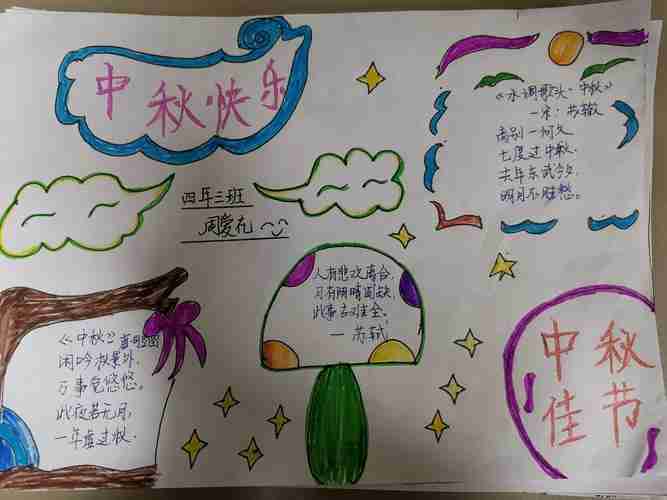 中秋快乐
四年三班
周爱冗
《水调歌头·中秋》
一宋:苏辙
离别一何久
七度过中秋.
去年东武今夕,
明月不胜愁。
人有悲欢离合,
月有阴晴圆缺,
此事古难全。
一苏轼
《中秋》
闲吟秋景外,
万事觉悠悠。
此夜若无月,
一年虚过秋.
中秋
佳节